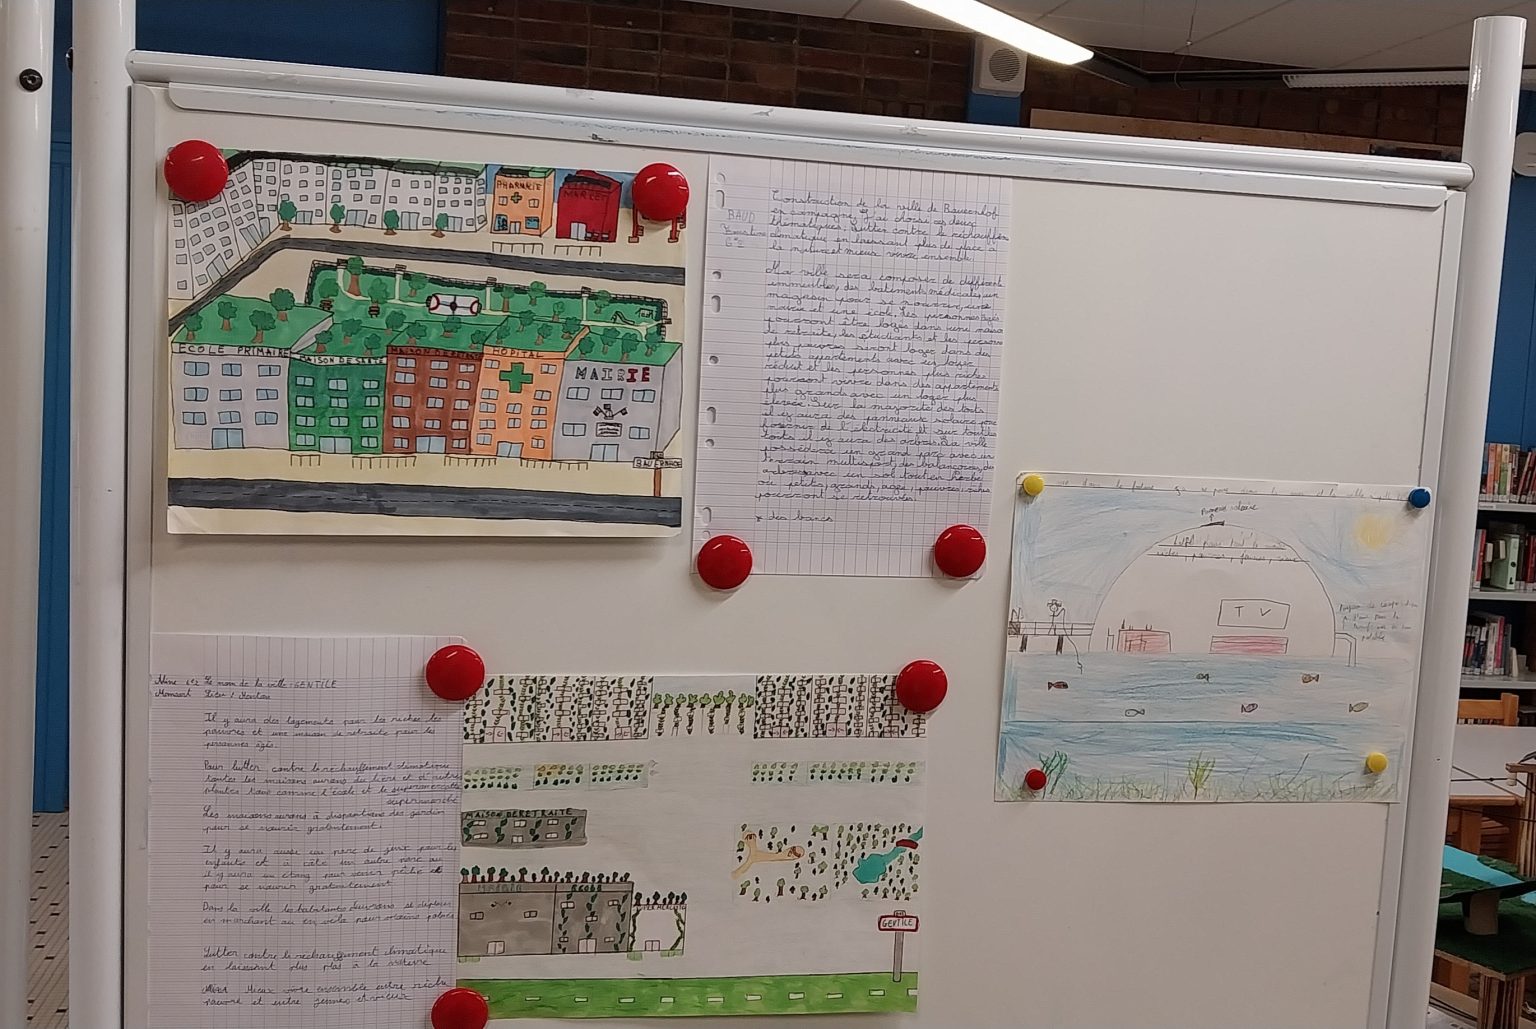 PHARMACIE
MARKET
ECOLE PRIMAIRE
MAISON DE SANTE
HOPITAL
MAIRIE
BAUD
6°2
Construction de la ville de
en campagne, J'ai choisi ces deux
thématiques, Lutter contre le
climatique en laissant plus de place à
la nature et mieux vivre ensemble.
Ma ville sera composer de différents
immeubles, des bâtiments médicales, un
magasin pour se nourrir, une
mairie et une école. Les personnes âgés
pourront être logés dans une maison
de retraite, les étudiants et les personnes
plus pauvres seront loger dans des
petits appartements avec un loyer
réduit et les personnes plus riches
pourront vivre dans des appartements
plus grands avec un loyer plus
élevée. Sur la majorité des toits
il y aura des panneaux solaire pour
fournir de l'électricité et sur toutes
toits il y aura des arbres. La ville
possédera un grand parc avec un
terrain multisport, des balançoires, des
arbres avec un sol tout en herbe
où petits, grands, agés, pauvres, riches
pourront se retrouver.
* des bancs
Panneau solaire
T V
potable
6e2 Le nom de la ville : GENTILE
Il y aura des logements pour les riches les
pauvres et une maison de retraite pour les
personnes agés.
Pour lutter contre le réchauffement climatique
toutes les maisons aurons du lière et d'autres
plantes tous comme l'école et le
supermarché
Les maisons aurons à disposition des jardin
pour se nourir gratuitement.
Il y aura aussi un parc de jeux pour les
enfants et à côté un autre parc où
il y aura un étang pour venir pêcher et
pour se nourir gratuitement
Dans la ville les habitants devrons se déplacer
en marchant ou en vélo pour moins polluer
Lutter contre le réchauffement climatique
en laissant plus plas à la nature
Mieux vivre ensemble entre riche
pauvre et entre jeunes et vieux
MAISON DE RETRAITE
MAIRIE
ECOLE
GENTILE